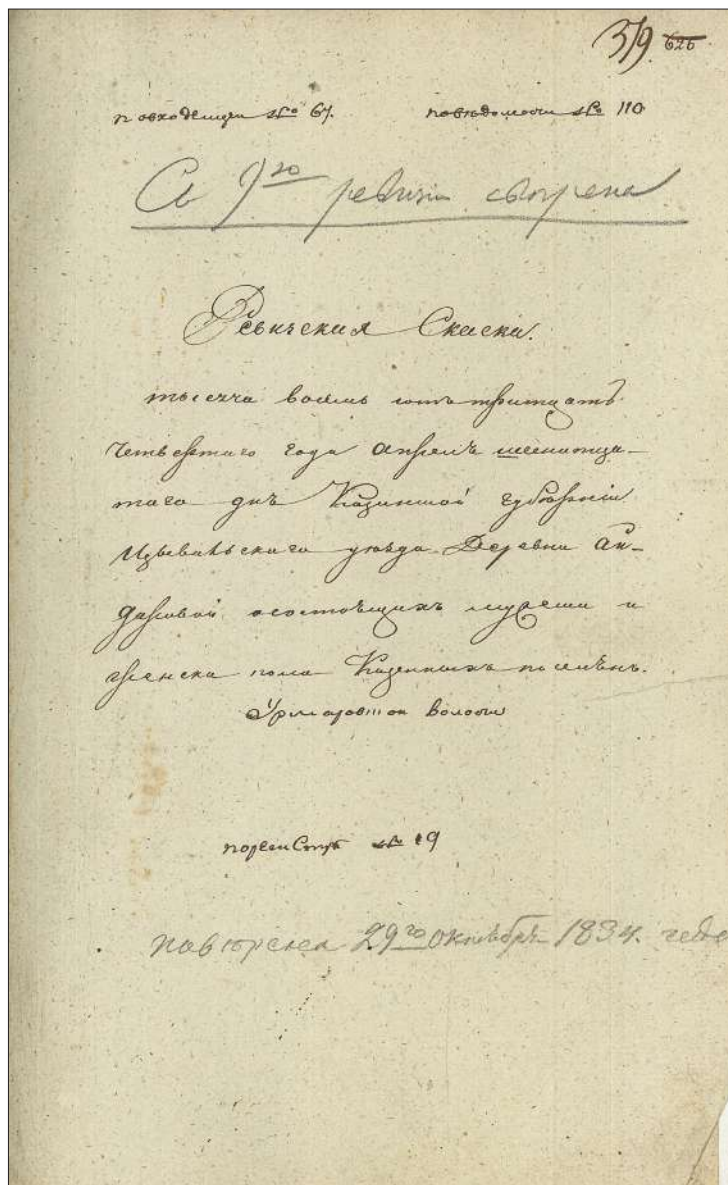 379. 626
повходящеи № 67. поведомости № 110
Съ 7го ревизіи сверена
Ревиския Скаски.
тысеча восемь сотъ тритцать
Четвертаго года Апреля шеснатца-
таго дня Казанской губерніи
Цывильскаго уезда Деревни Ан-
даровой осостоящихъ мужеска и
женска пола Казенныхъ поселянъ.
Урмаровской волости
пореистру № 19
поверена 29го октября 1834. года